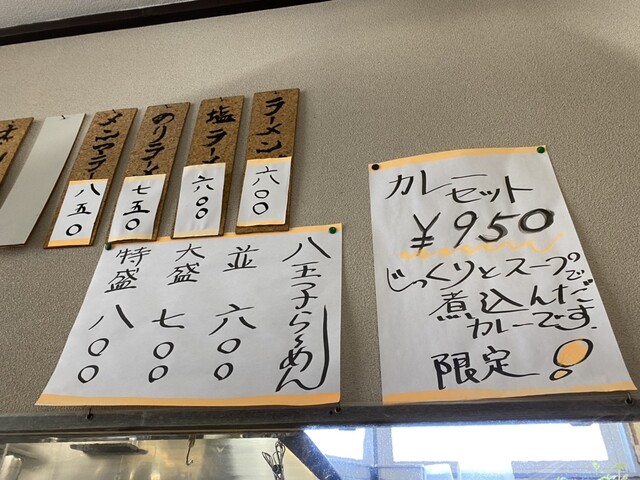 ラーメン
六〇〇
塩ラーメ
六〇〇
のりラーメ
七五〇
メンマラー
八五〇
八王子らぁめん
並 六〇〇
大盛 七〇〇
特盛 八〇〇
カレー
セット
￥950
じっくりとスープで
煮込んだ
カレーです。
限定!